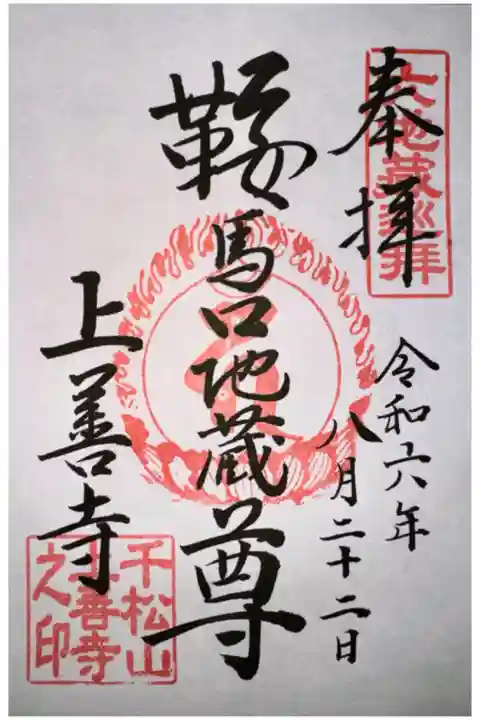 奉拝
六地蔵巡拝
令和六年
八月二十二日
鞍馬口地蔵尊
上善寺
千松山
上善寺
之印